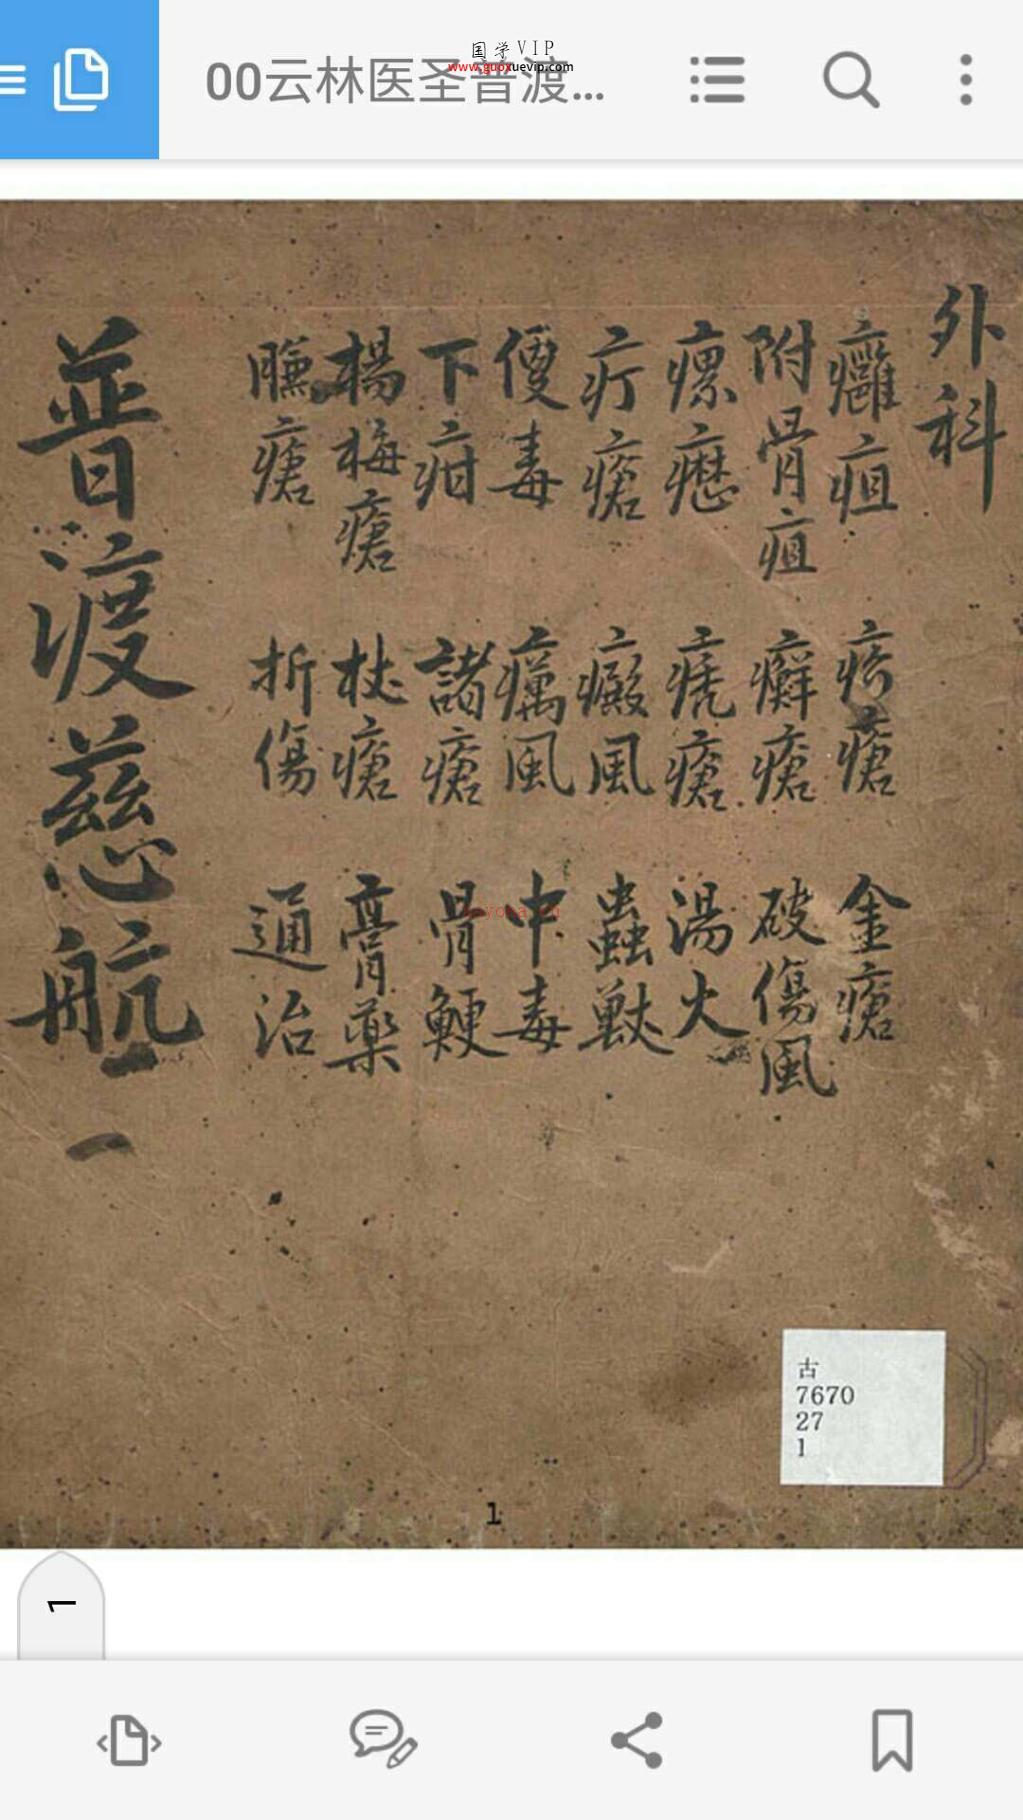 国学VIP
www.guoxuevip.com
00云林医圣普渡...
外科
癰疽 疥瘡 金瘡
附骨疽 癬瘡 破傷風
瘰癧 禿瘡 湯火
疔瘡 癜風 蟲獸
便毒 癘風 中毒
下疳 諸瘡 骨鯁
楊梅瘡 杖瘡 膏藥
臁瘡 折傷 通治
普渡慈航
一
古
7670
27
1
1
1